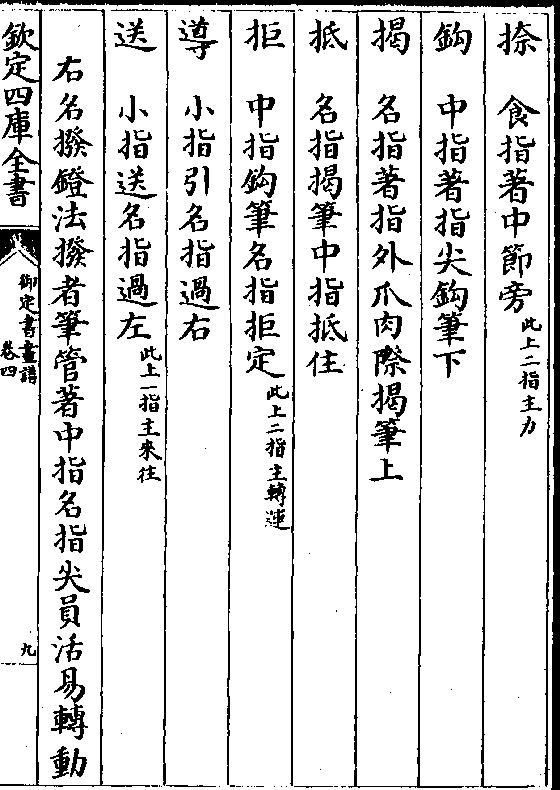 捺　食指著中節旁此上二指主力
鈎　中指著指尖鈎筆下
揭　名指著指外爪肉際揭筆上
抵　名指揭筆中指抵住
拒　中指鈎筆名指拒定此上二指主轉運
導　小指引名指過右
送　小指送名指過左此上一指主來往
右名撥鐙法撥者筆管著中指名指尖員活易轉動
欽定四庫全書
御定書畫譜
卷四
九